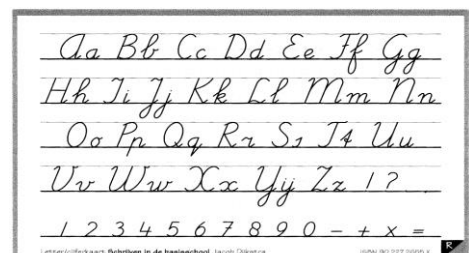 Aa Bb Cc Dd Ee Ff Gg
Hh Ii Jj Kk Ll Mm Nn
Oo Pp Qq Rr Ss Tt Uu
Vv Ww Xx Yij Zz ! ?
1 2 3 4 5 6 7 8 9 0 - + x =
Letter/cijferkaart: Schrijven in de basisschool, Jacob Dijkstra ISBN 90 227 R